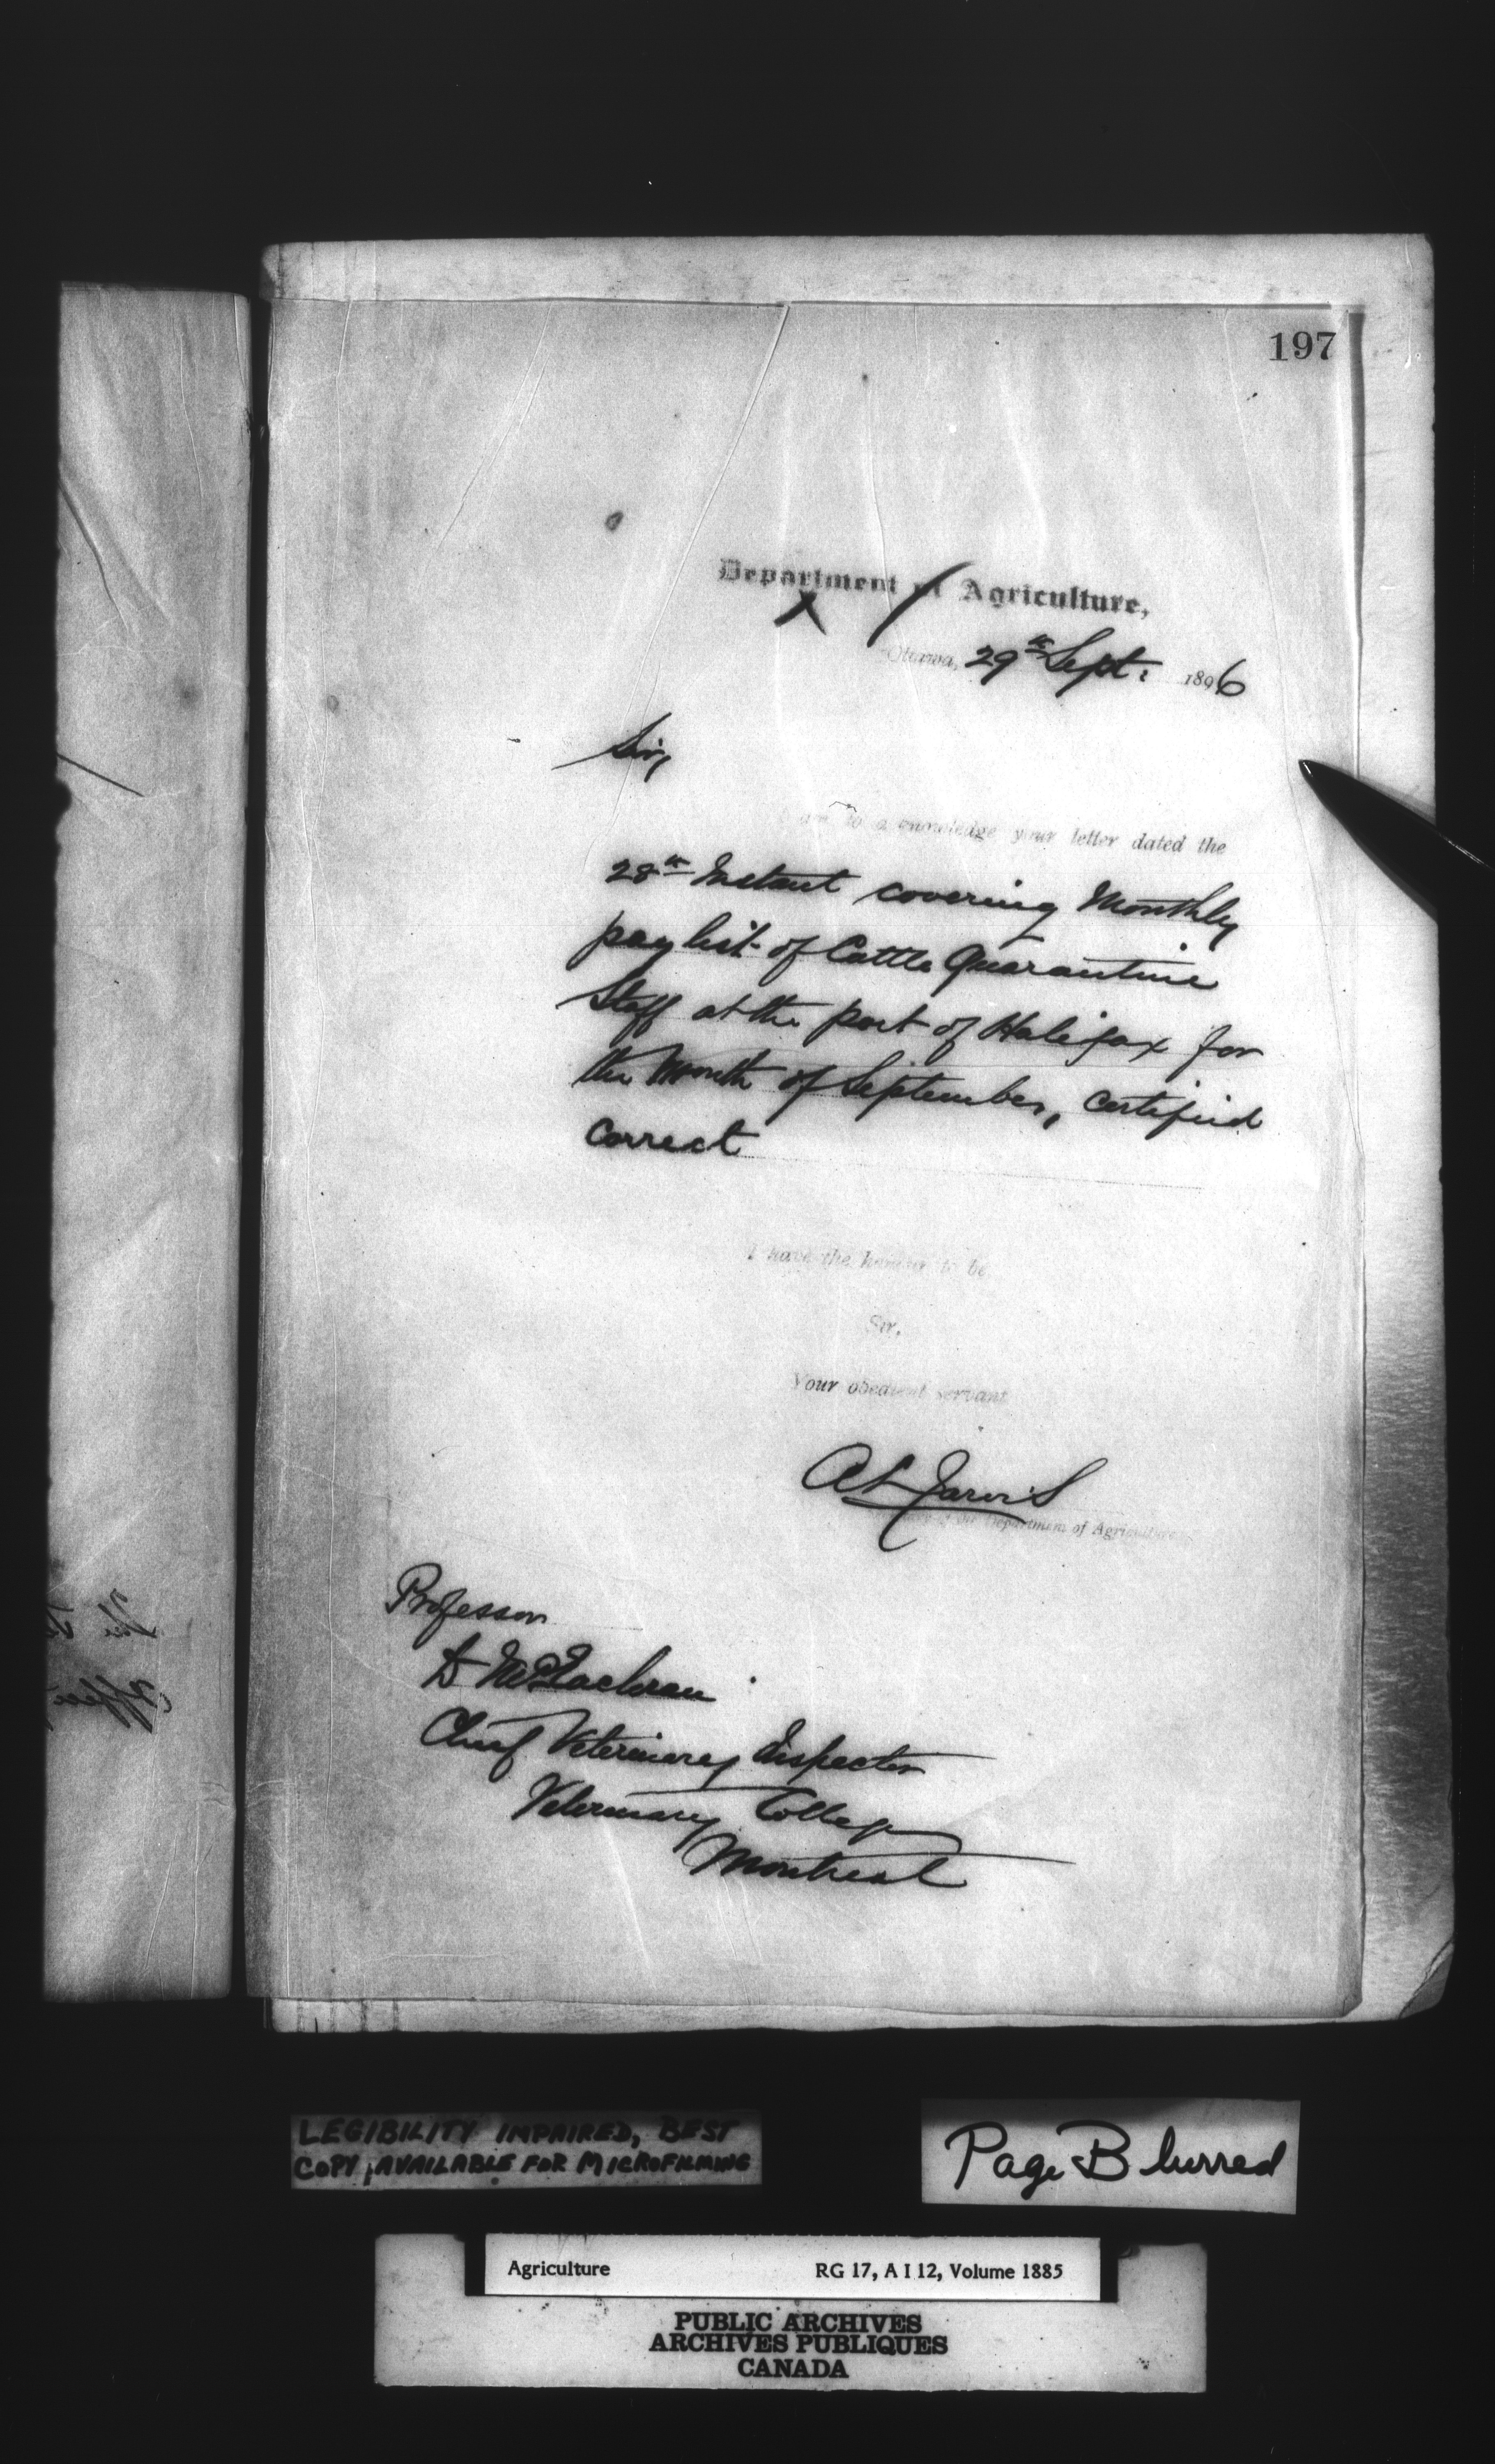 197
Department of Agriculture,
Ottawa, 29th Sept. 1896
Sir,
I am to acknowledge your letter dated the
28th Instant covering Monthly
pay list of Cattle Quarantine
Staff at the port of Halifax for
the Month of September, certified
correct
I have the honour to be
Sir,
Your obedient servant
A L Jarvis
of the Department of Agriculture
Professor
D McEachran
Chief Veterinary Inspector
Veterinary College
Montreal
LEGIBILITY IMPAIRED, BEST
COPY AVAILABLE FOR MICROFILMING
Page Blurred
Agriculture RG 17, A I 12, Volume 1885
PUBLIC ARCHIVES
ARCHIVES PUBLIQUES
CANADA